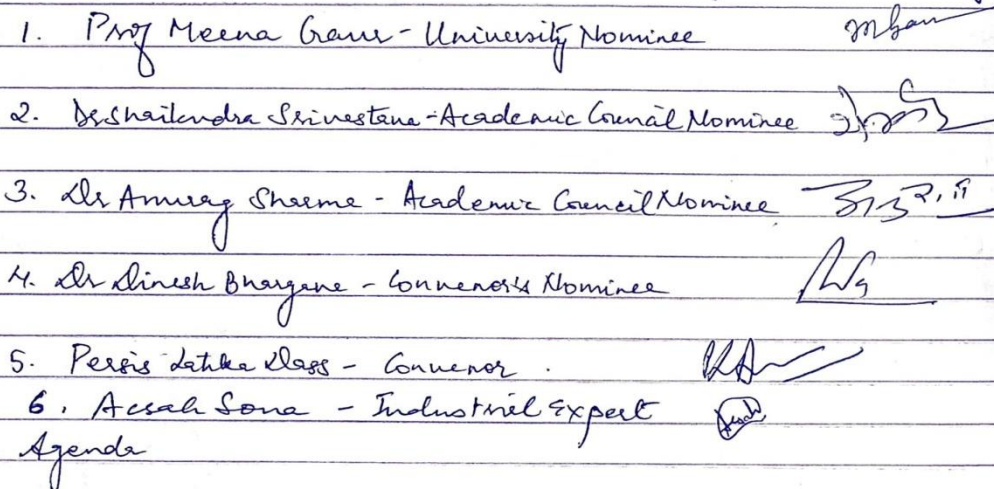 1. Prof Meena Gaur - University Nominee
2. Dr Shailendra Srivastava - Academic Council Nominee
3. Dr Anurag Sharma - Academic Council Nominee अनुराग
4. Dr Dinesh Bhargava - Convenor's Nominee
5. Persis Latika Dass - Convenor.
6. Acsah Sona - Industrial Expert
Agenda